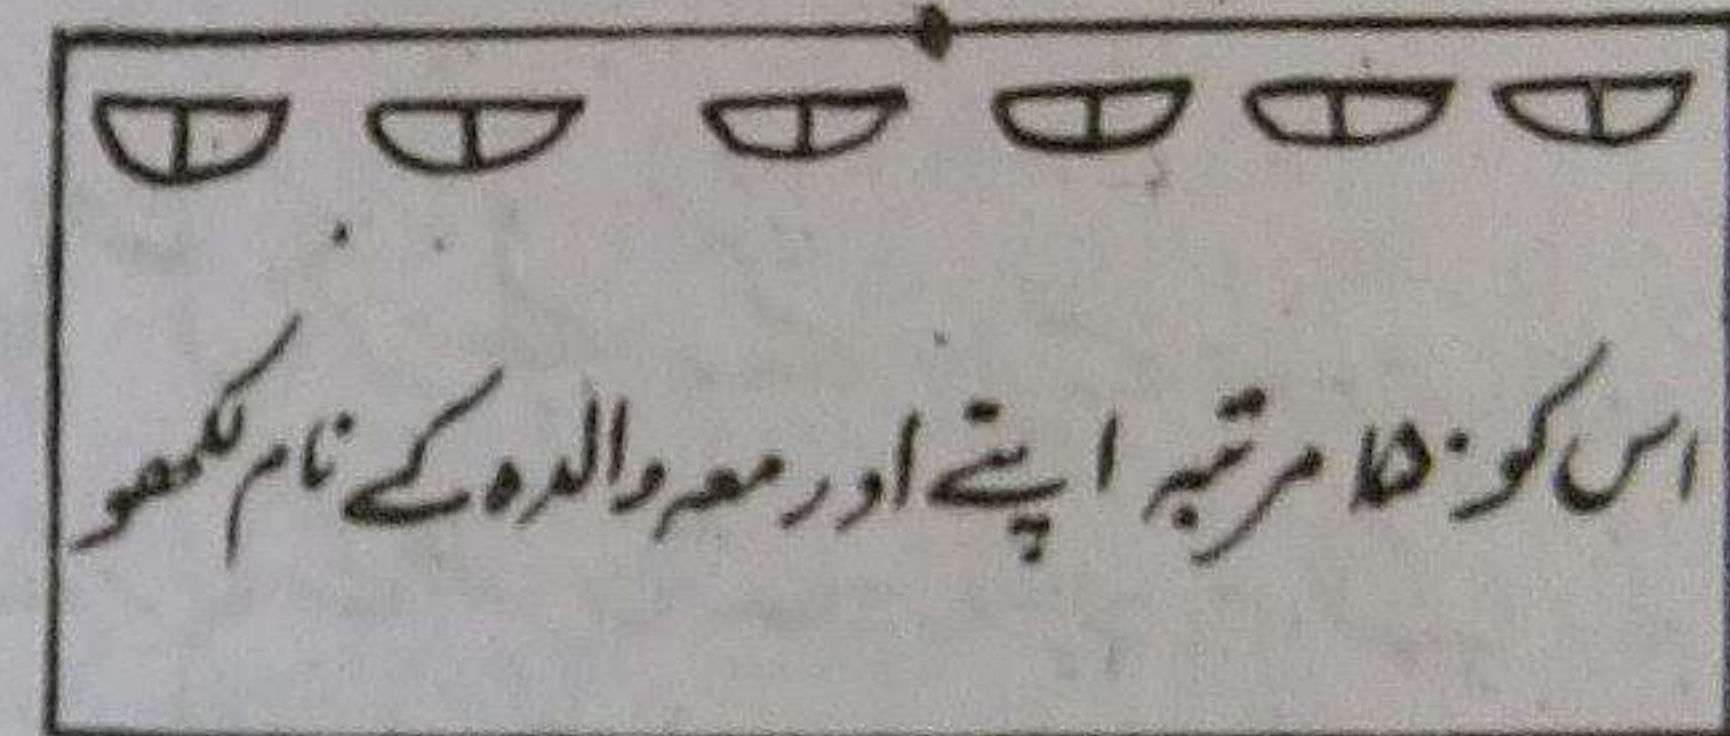 اس کو ۱۵۰ مرتبہ اپنے اور معہ والدہ کے نام لکھو